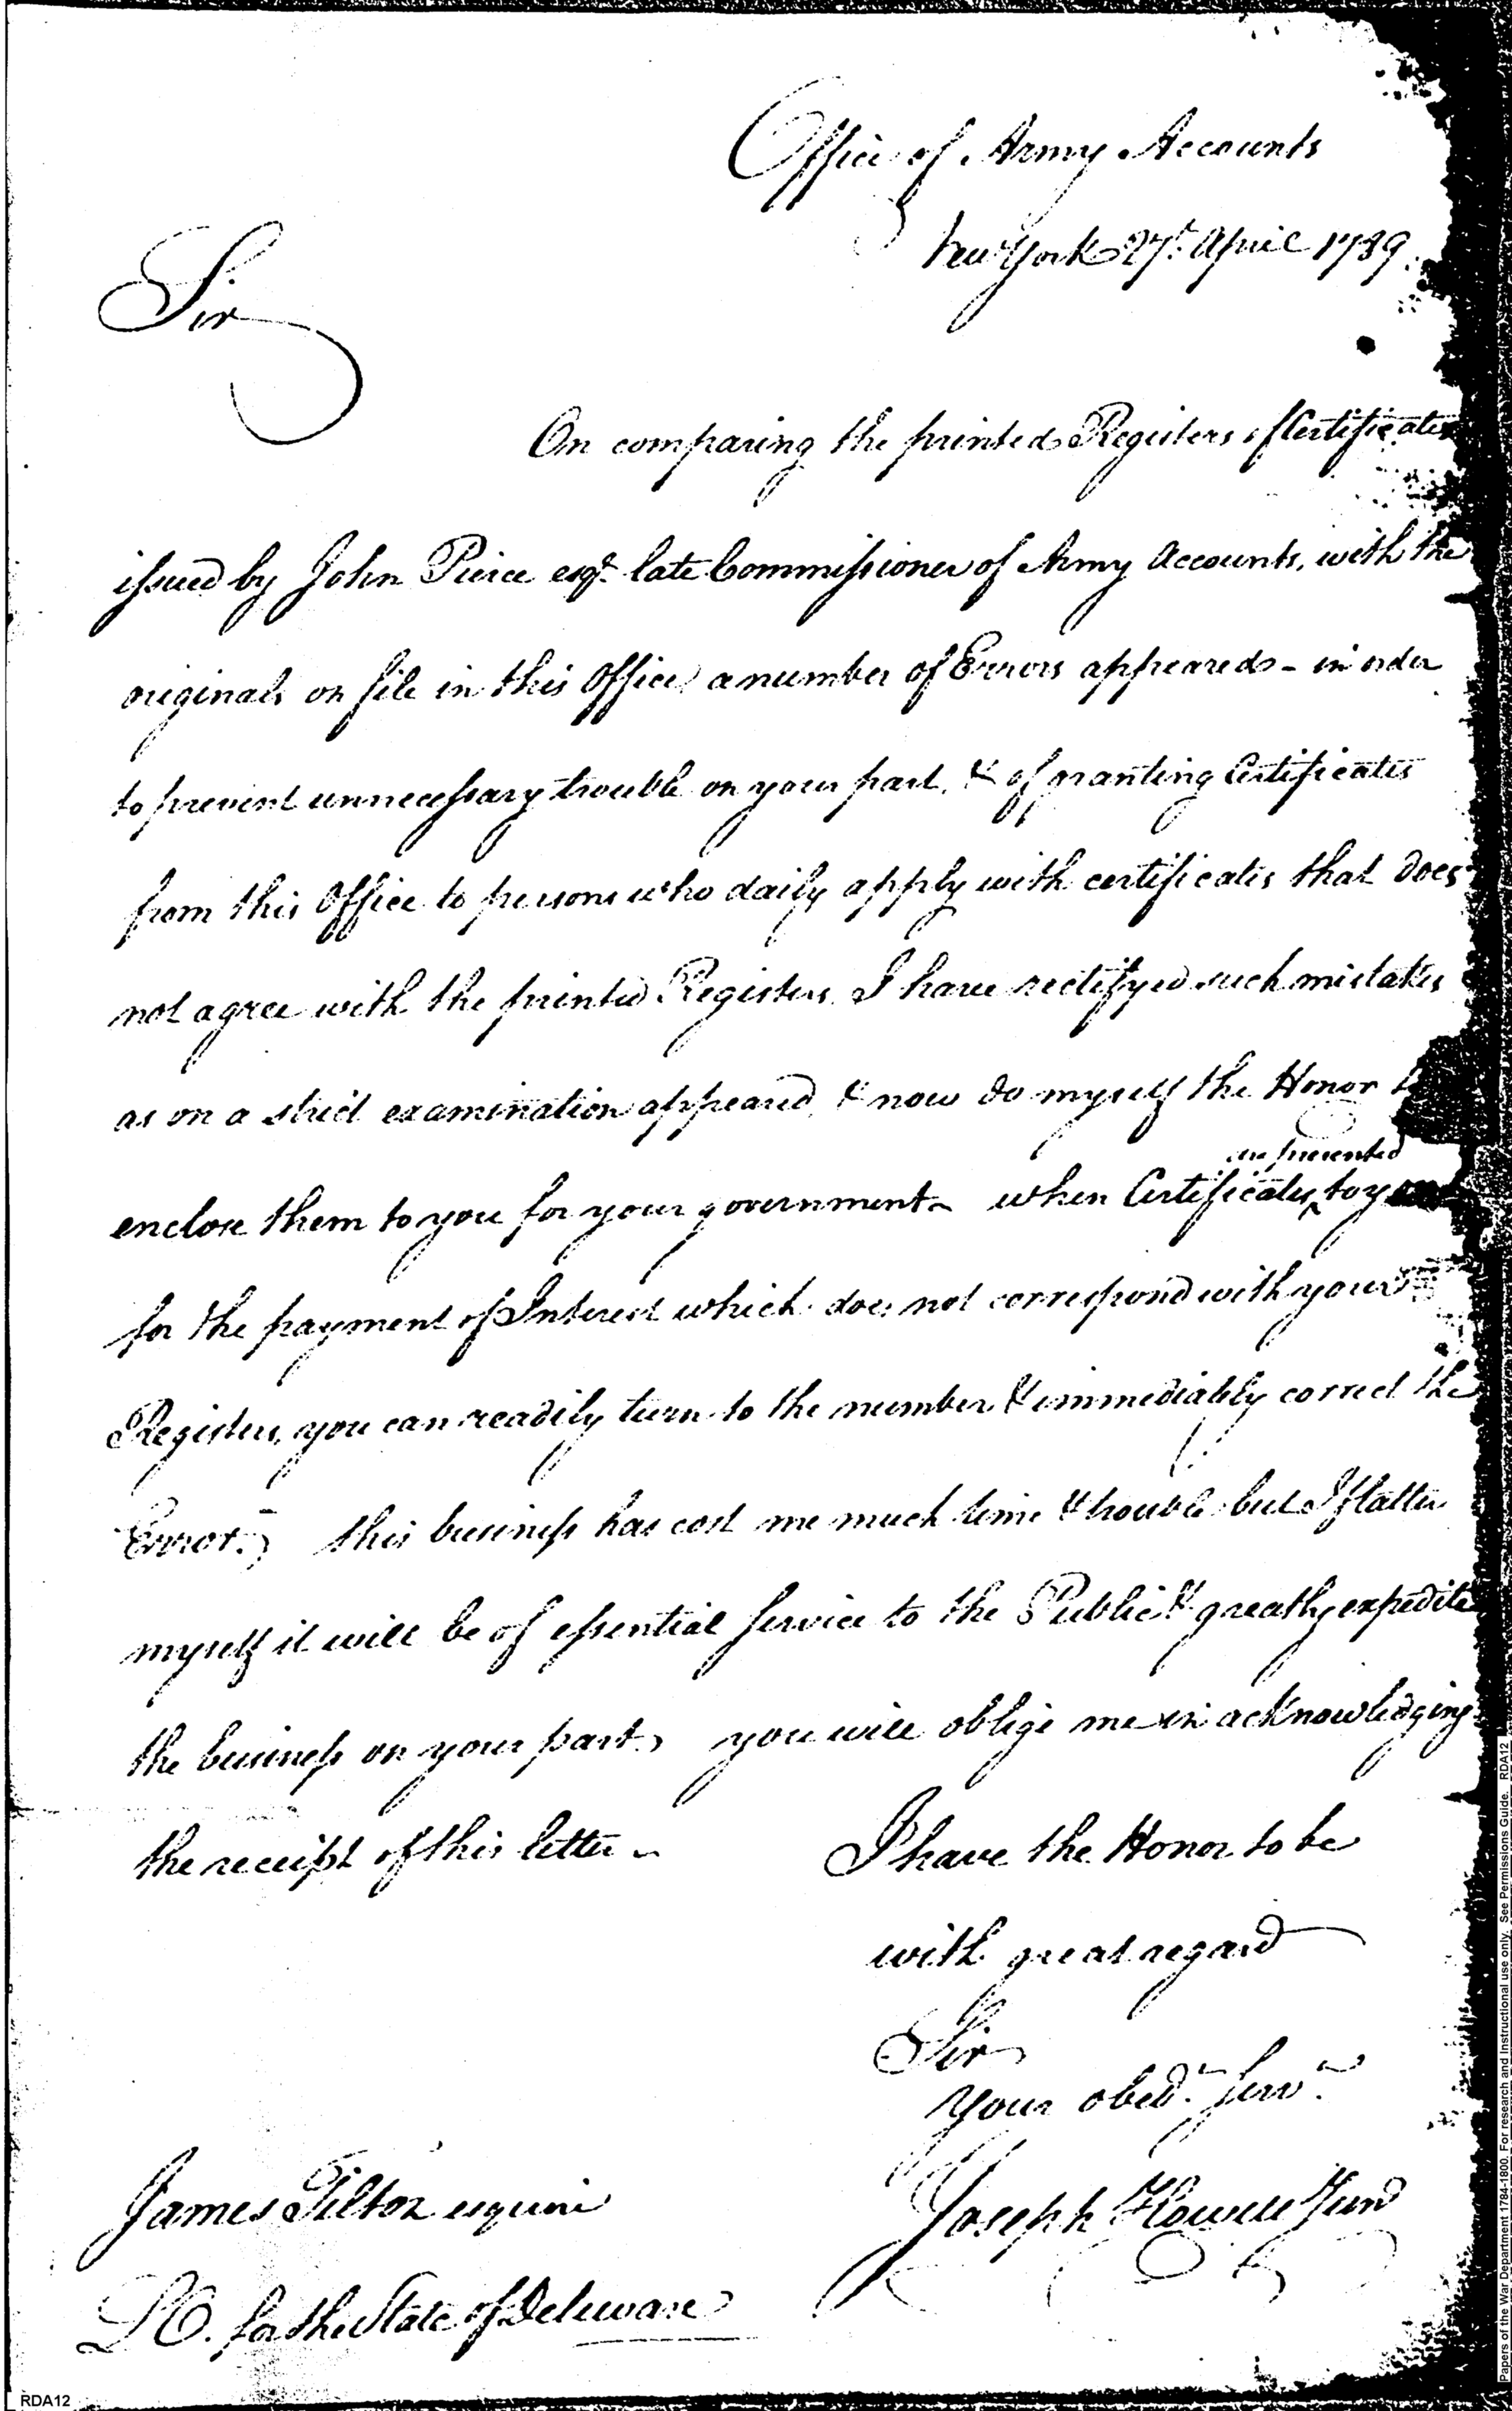 Office of Army Accounts
New York 27th April 1789.
Sir
On comparing the printed Registers of Certificates
issued by John Pierce esqr. late Commissioner of Army Accounts, with the
originals on file in this Office a number of Errors appeared - in order
to prevent unnecessary trouble on your part, & of granting Certificates
from this Office to persons who daily apply with certificates that does
not agree with the printed Registers. I have rectifyed such mistakes
as on a strict examination appeared, & now do myself the Honor to
are presented
enclose them to you for your government - when Certificates ^ to you
for the payment of Interest which does not correspond with your
Registers, you can readily turn to the number & immediately correct the
Error. - this business has cost me much time & trouble but I flatter
myself it will be of essential service to the Public & greatly expedite
the business on your part, you will oblige me in acknowledging
the receipt of this letter -
I have the Honor to be
with great regard
Sir
Your obedt. Servt.
Joseph Howell Jund
James Tilton esquire
L O. for the State of Deleware
RDA12
Papers of the War Department 1784-1800. For research and Instructional use only. See Permissions Guide. RDA12